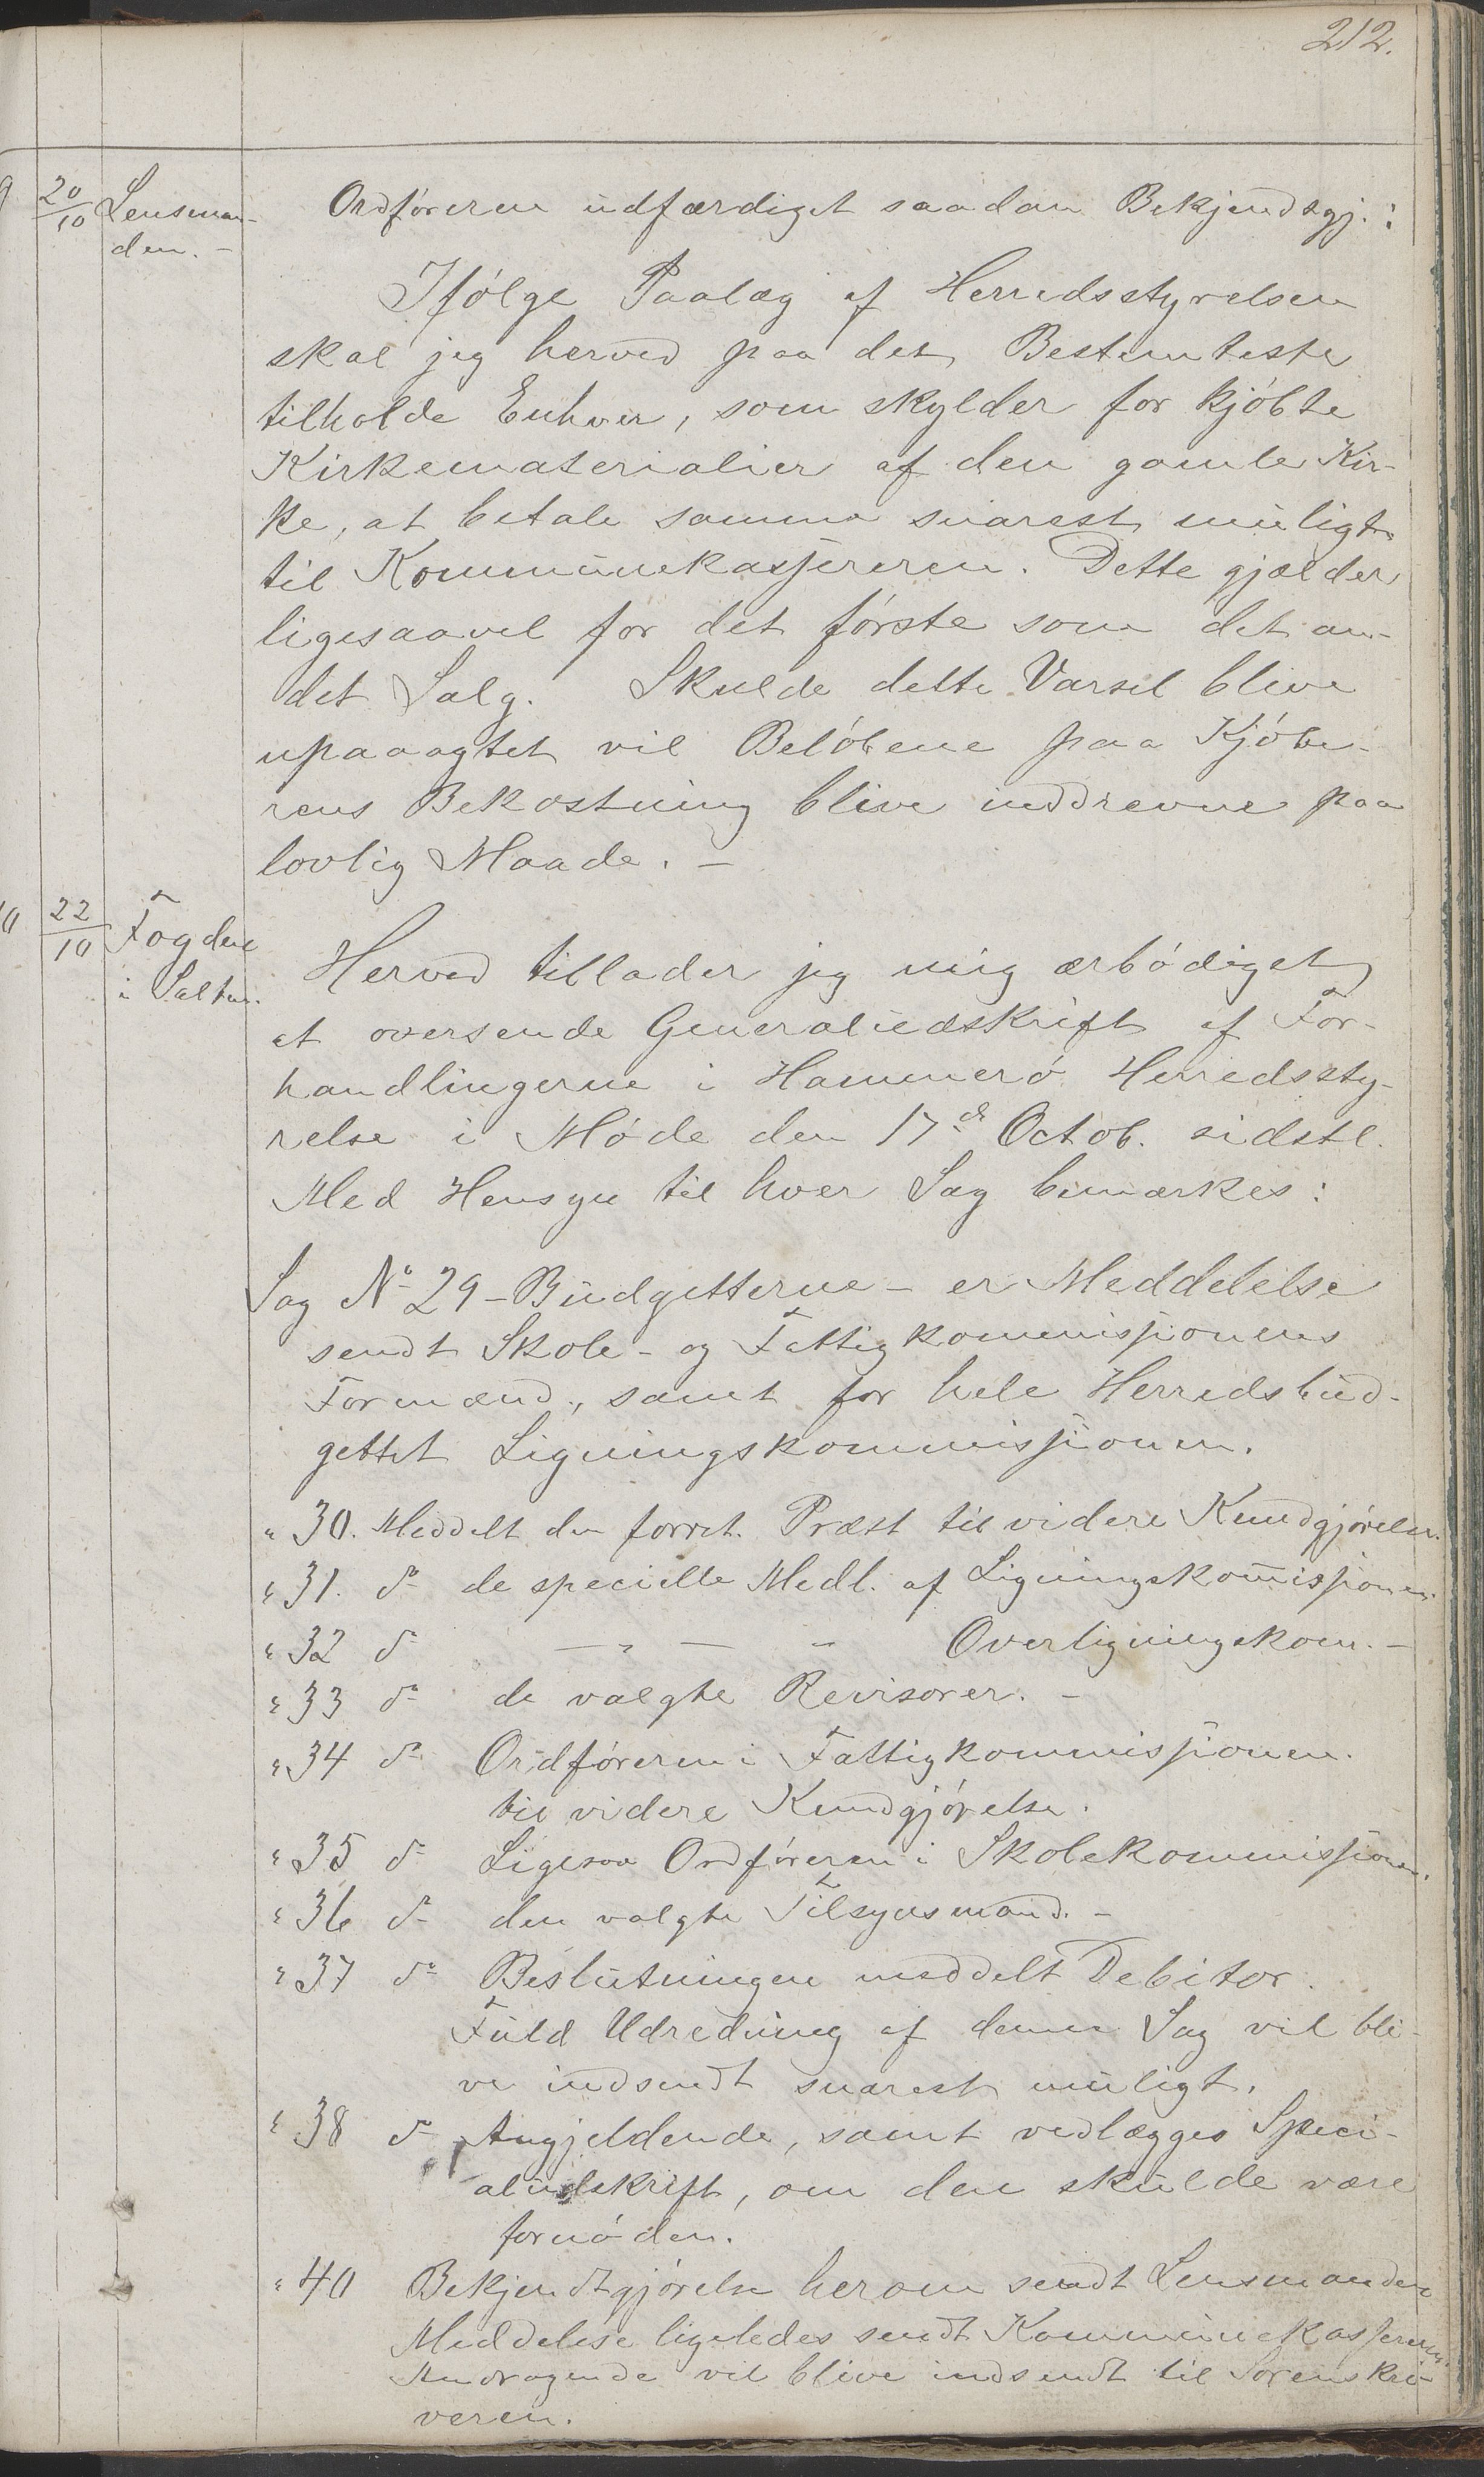 212.
9 20/10 Lensman-
den. -
Ordföreren udfærdiget saadan Bekjendtgj.:
Ifölge Paalæg af Herredsstyrelsen
skal jeg herved paa det Bestemteste
tilholde Enhver, som skylder for kjöbte
Kirkematerialier af den gamle Kir-
ke, at betale samme snarest muligt
til Kommunekassereren. Dette gjælder
ligesaavel for det förste som det an-
det Salg. Skulde dette Varsel blive
upaaagtet vil Belöbene paa Kjöbe-
rens Bekostning blive inddrevne paa
lovlig Maade. -
10 22/10 Fogden
i Salten.
Herved tillader jeg mig ærbödigst
at oversende Generaludskrift af For-
handlingerne i Hammerö Herredssty-
relse i Möde den 17de Octob. sidstl.
Med Hensyn til hver Sag bemærkes:
Sag No 29 - Budgetterne - er Meddelelse
sendt Skole- og Fattigkommissionens
Formænd, samt for hele Herredsbud-
gettet Ligningskommissionen.
" 30. Meddelt den forret. Præst til videre Kundgjörelse.
" 31. do de specielle Medl. af Ligningskommissionen.
" 32 do — " — " Overligningskom. -
" 33 do de valgte Revisorer. -
" 34 do Ordföreren i Fattigkommissionen.
til videre Kundgjörelse.
" 35 do Ligesaa Ordföreren i Skolekommissionen.
" 36 do den valgte Tilsynsmand. -
" 37 do Beslutningen meddelt Debitor.
Fuld Udredning af denne Sag vil bli-
ve indsendt snarest muligt.
" 38 do Angjeldende, samt vedlægges Speci-
aludskrift, om den skulde være
fornöden.
" 40 Bekjendtgjörelse herom sendt Lensmanden
Meddelese ligeledes sendt Kommunekassereren.
Andragende vil blive indsendt til Sorenskri-
veren.